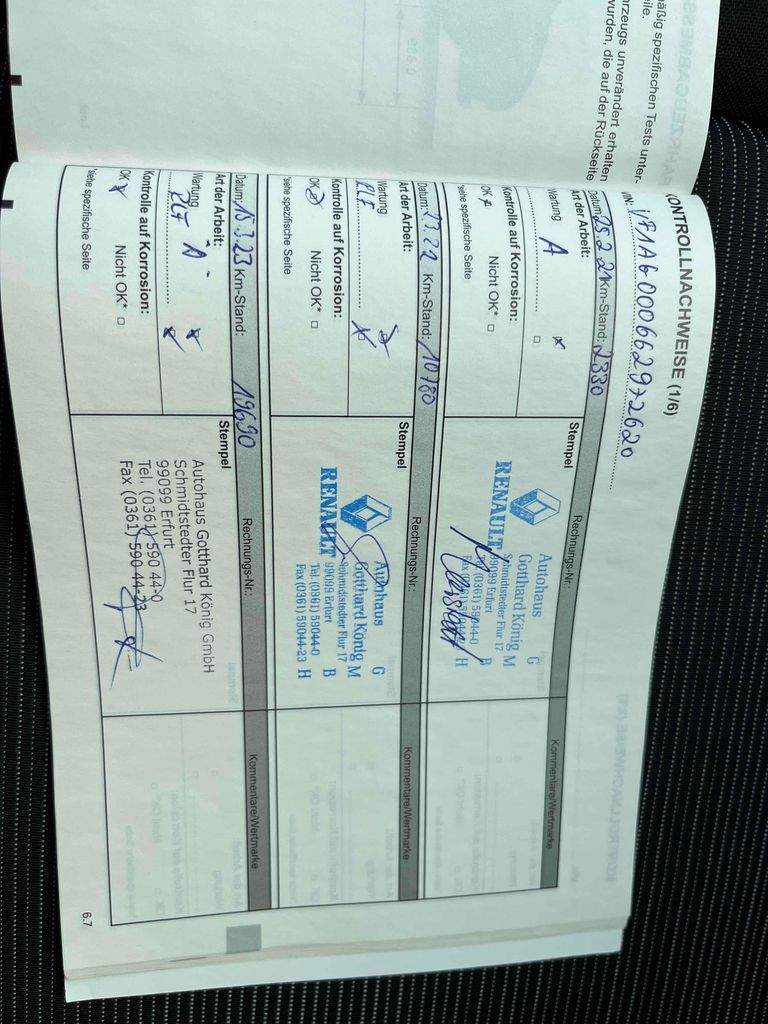 mäßig spezifischen Tests unter-
eile.
rzeugs unverändert erhalten
wurden, die auf der Rückseite
KONTROLLNACHWEISE (1/6)
VIN: VF1AG000662972620
Datum: 25.2.21 Km-Stand: 2330 Rechnungs-Nr.: Kommentare/Wertmarke
Art der Arbeit: Stempel
Wartung A x
□
Kontrolle auf Korrosion:
OK x Nicht OK* □
*siehe spezifische Seite
RENAULT
Autohaus G
Gotthard König M
Schmidtstedter Flur 17
99099 Erfurt B
Tel. (0361) 59044-0
Fax (0361) 59044-23 H
Km-Stand: 10780 Rechnungs-Nr.: Kommentare/Wertmarke
Datum:
Art der Arbeit: Stempel
Wartung x
PLF x
Kontrolle auf Korrosion:
OK Nicht OK* □
*siehe spezifische Seite
RENAULT
Autohaus G
Gotthard König M
Schmidtstedter Flur 17
99099 Erfurt B
Tel. (0361) 59044-0
Fax (0361) 59044-23 H
Datum: 15.3.23 Km-Stand: 19690 Rechnungs-Nr.: Kommentare/Wertmarke
Art der Arbeit: Stempel
Wartung A x
PLF x
Kontrolle auf Korrosion:
OK x Nicht OK* □
*siehe spezifische Seite
Autohaus Gotthard König GmbH
Schmidtstedter Flur 17
99099 Erfurt
Tel. (0361) 590 44-0
Fax (0361) 590 44-23
6.7